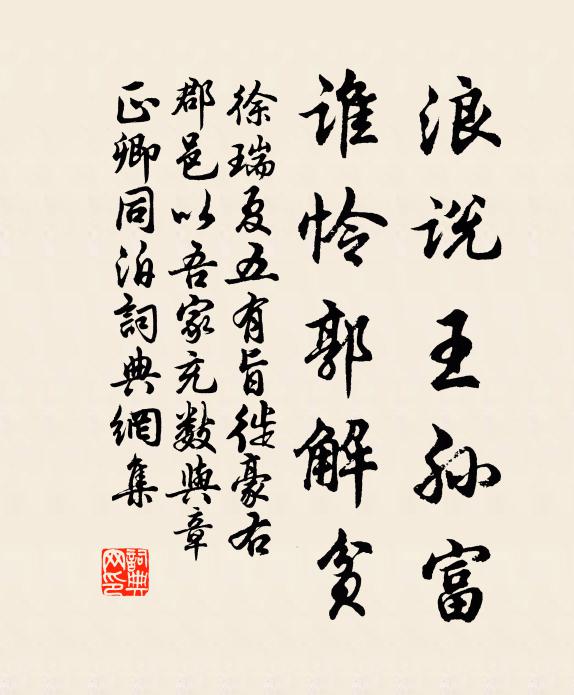 浪说王孙富
谁怜郭解贫
徐瑞夏五有旨徙豪右
郡邑以吾家充数與章
正卿同泊詞典網集
詞典网印